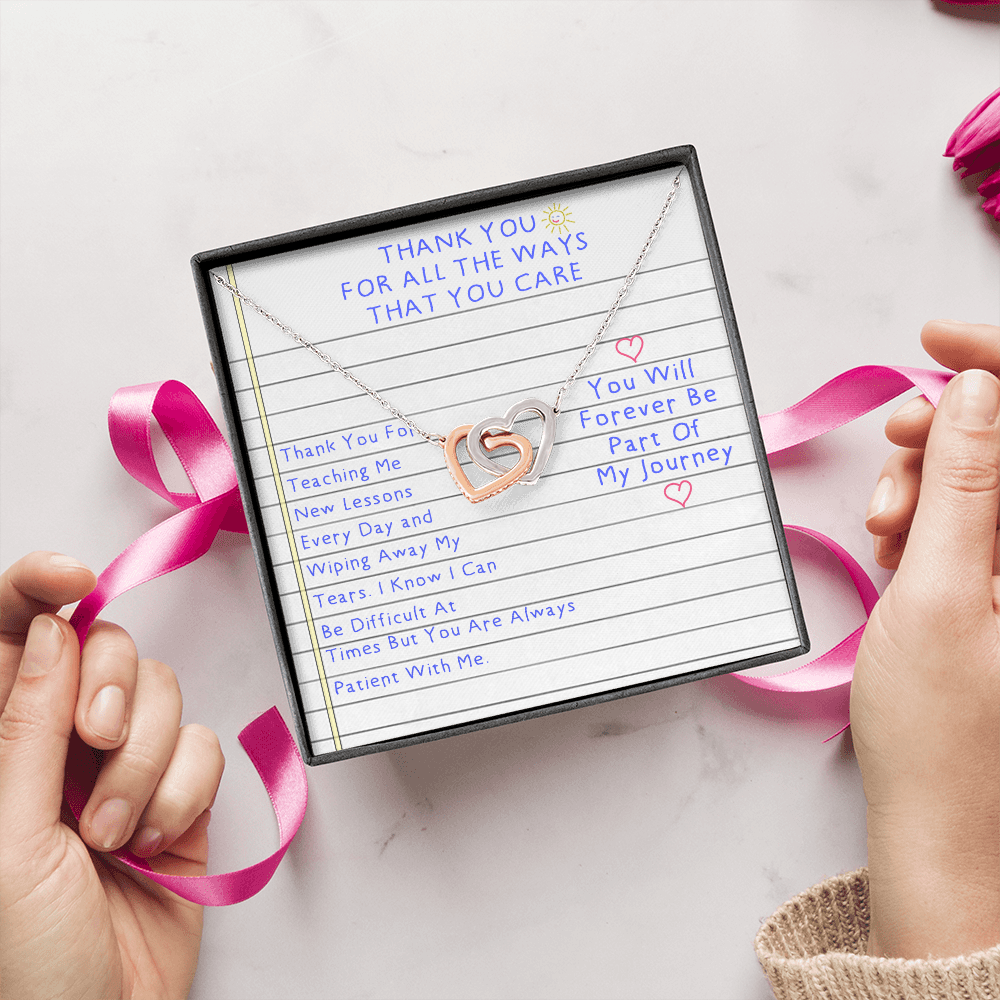 THANK YOU
FOR ALL THE WAYS
THAT YOU CARE
Thank You For
Teaching Me
New Lessons
Every Day and
Wiping Away My
Tears. I Know I Can
Be Difficult At
Times But You Are Always
Patient With Me.
You Will
Forever Be
Part Of
My Journey